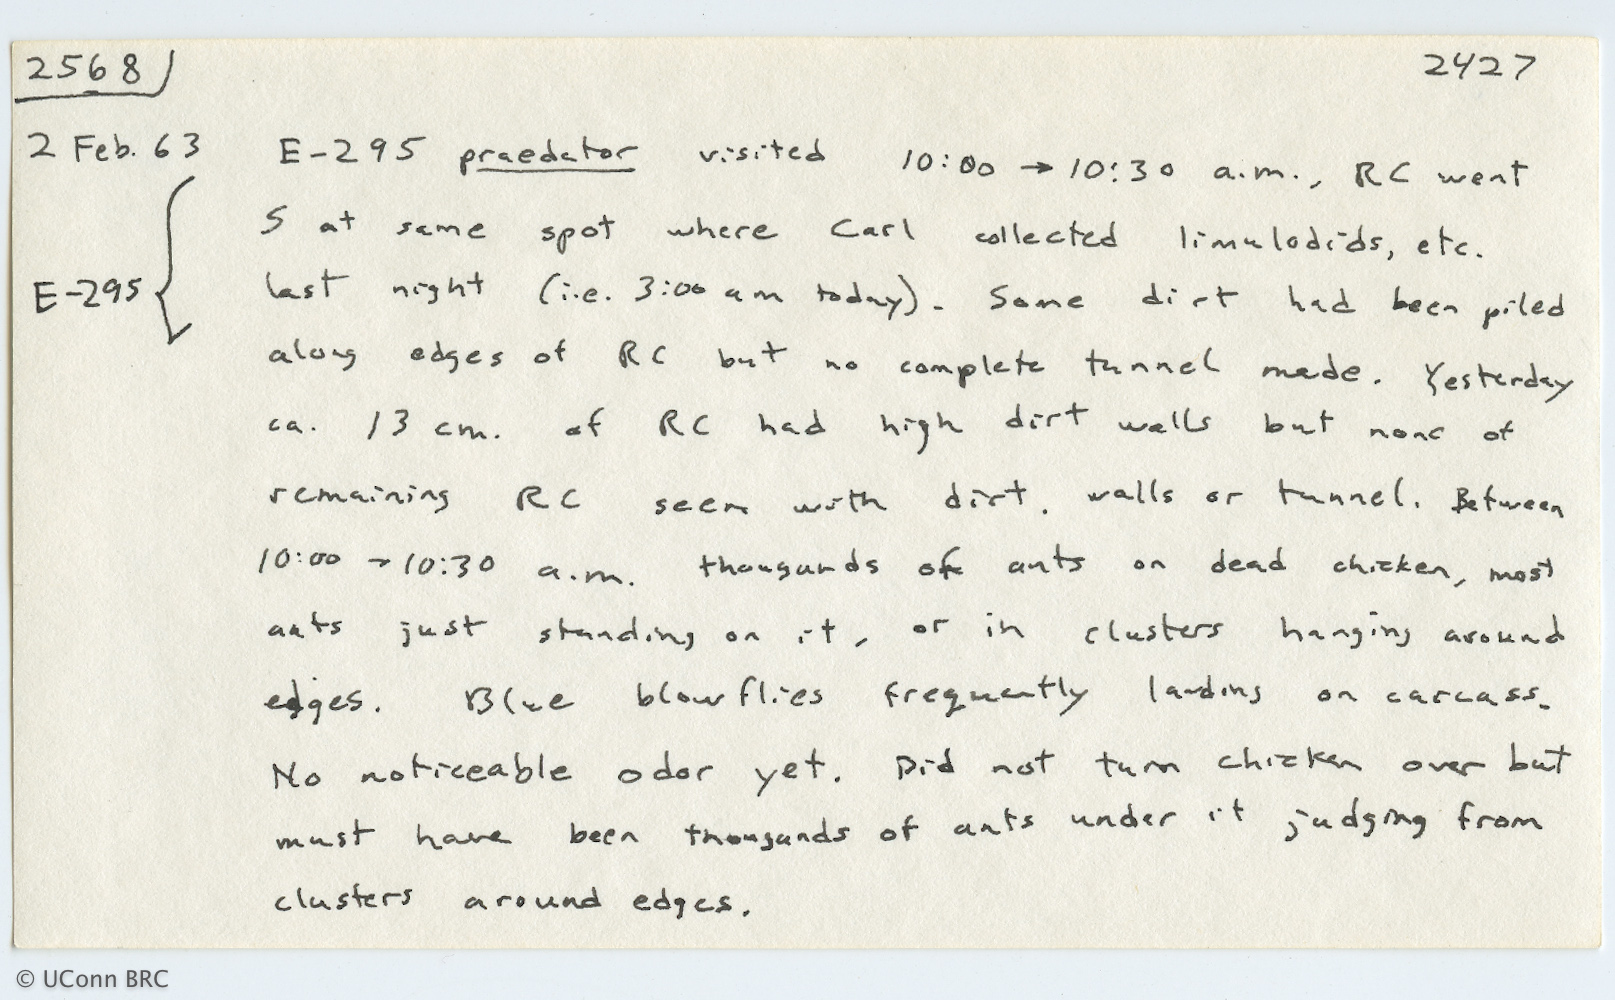 2568 2427
2 Feb. 63 E-295 praedator visited 10:00 → 10:30 a.m., RC went
S at same spot where Carl collected limulodids, etc.
E-295 last night (i.e. 3:00 am today). Some dirt had been piled
along edges of RC but no complete tunnel made. Yesterday
ca. 13 cm. of RC had high dirt walls but none of
remaining RC seen with dirt. walls or tunnel. Between
10:00 → 10:30 a.m. thousands of ants on dead chicken, most
ants just standing on it, or in clusters hanging around
edges. Blue blowflies frequently landing on carcass.
No noticeable odor yet. Did not turn chicken over but
must have been thousands of ants under it judging from
clusters around edges.
© UConn BRC